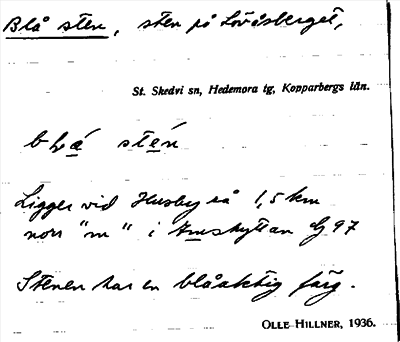 Blå sten, sten på Lövåsberget,
St. Skedvi sn, Hedemora tg, Kopparbergs län.
blǻ stén
Ligger vid Husby rå 1,5 km
norr "m" i Amshyttan G 97
Stenen har en blåaktig färg.
OLLE HILLNER, 1936.